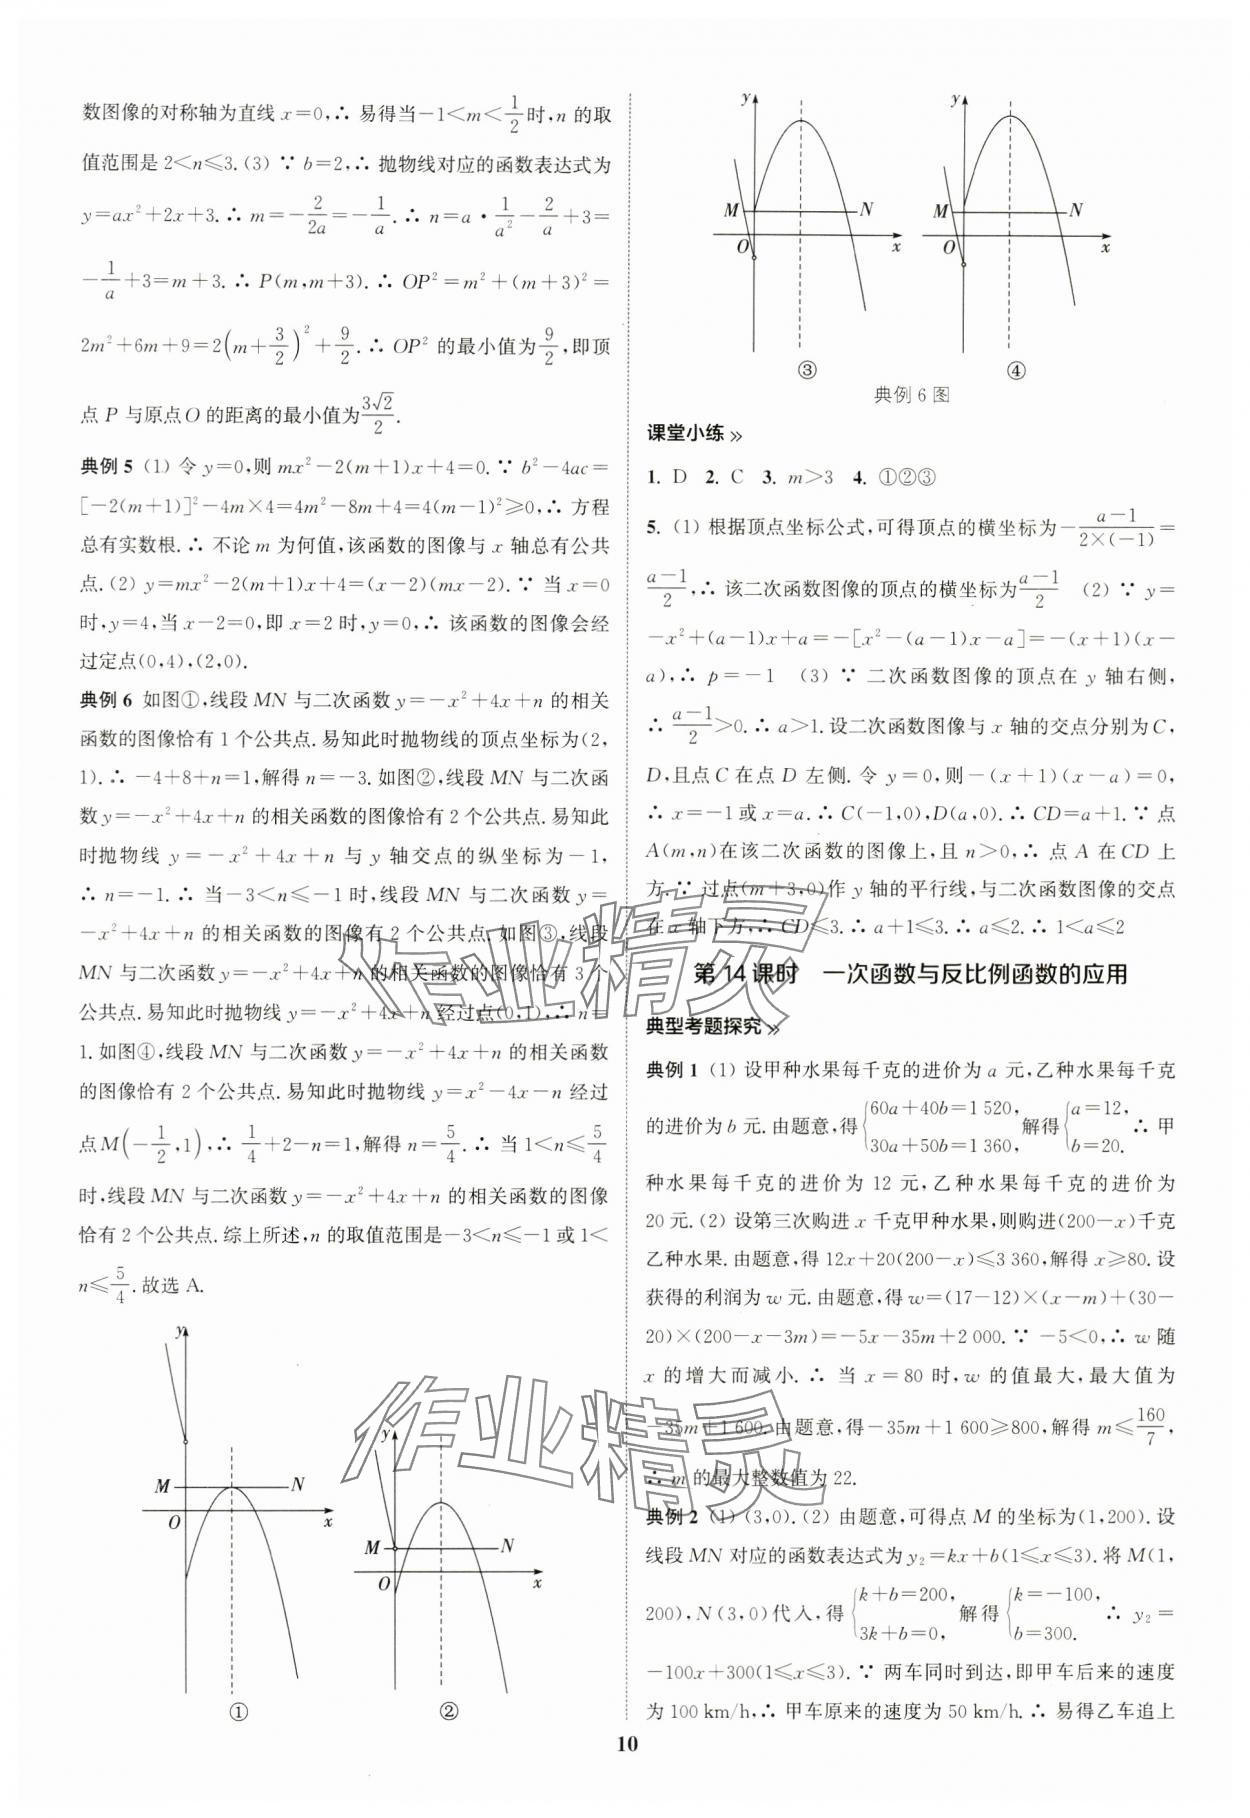 数图像的对称轴为直线 x=0,∴ 易得当-1<m<1/2时,n 的取
值范围是 2<n≤3.(3) ∵ b=2,∴ 抛物线对应的函数表达式为
y=ax²+2x+3.∴ m=-2/2a=-1/a.∴ n=a·1/a²-2/a+3=
-1/a+3=m+3.∴ P(m,m+3).∴ OP²=m²+(m+3)²=
2m²+6m+9=2(m+3/2)²+9/2.∴ OP² 的最小值为9/2,即顶
点 P 与原点O 的距离的最小值为3√2/2.
典例 5 (1) 令 y=0,则 mx²-2(m+1)x+4=0.∵ b²-4ac=
[-2(m+1)]²-4m×4=4m²-8m+4=4(m-1)²≥0,∴ 方程
总有实数根.∴ 不论 m 为何值,该函数的图像与 x 轴总有公共
点.(2) y=mx²-2(m+1)x+4=(x-2)(mx-2).∵ 当 x=0
时,y=4,当 x-2=0,即 x=2 时,y=0,∴ 该函数的图像会经
过定点(0,4),(2,0).
典例 6 如图①,线段 MN 与二次函数 y=-x²+4x+n 的相关
函数的图像恰有 1 个公共点.易知此时抛物线的顶点坐标为(2,
1).∴ -4+8+n=1,解得 n=-3.如图②,线段 MN 与二次函
数 y=-x²+4x+n 的相关函数的图像恰有 2 个公共点.易知此
时抛物线 y=-x²+4x+n 与 y 轴交点的纵坐标为-1,
∴ n=-1.∴ 当-3<n≤-1 时,线段 MN 与二次函数 y=
-x²+4x+n 的相关函数的图像有 2 个公共点.如图③,线段
MN 与二次函数 y=-x²+4x+n 的相关函数的图像恰有 3 个
公共点.易知此时抛物线 y=-x²+4x+n 经过点(0,1),∴ n=
1.如图④,线段 MN 与二次函数 y=-x²+4x+n 的相关函数
的图像恰有 2 个公共点.易知此时抛物线 y=x²-4x-n 经过
点M(-1/2,1),∴ 1/4+2-n=1,解得 n=5/4.∴ 当 1<n≤5/4
时,线段 MN 与二次函数 y=-x²+4x+n 的相关函数的图像
恰有 2 个公共点.综上所述,n 的取值范围是-3<n≤-1 或 1<
n≤5/4.故选 A.
y
M
N
O
x
①
y
M
N
O
x
②
y
M
N
O
x
③
y
M
N
O
x
④
典例 6 图
课堂小练
1. D 2. C 3. m>3 4. ①②③
5. (1) 根据顶点坐标公式,可得顶点的横坐标为-(a-1)/(2×(-1))=
(a-1)/2,∴ 该二次函数图像的顶点的横坐标为(a-1)/2 (2) ∵ y=
-x²+(a-1)x+a=-[x²-(a-1)x-a]=-(x+1)(x-
a),∴ p=-1 (3) ∵ 二次函数图像的顶点在 y 轴右侧,
∴ (a-1)/2>0.∴ a>1.设二次函数图像与 x 轴的交点分别为 C,
D,且点 C 在点 D 左侧.令 y=0,则-(x+1)(x-a)=0,
∴ x=-1 或 x=a.∴ C(-1,0),D(a,0).∴ CD=a+1.∵ 点
A(m,n)在该二次函数的图像上,且 n>0,∴ 点 A 在 CD 上
方.∵ 过点(m+3,0)作 y 轴的平行线,与二次函数图像的交点
在 x 轴下方,∴ CD≤3.∴ a+1≤3.∴ a≤2.∴ 1<a≤2
第 14 课时 一次函数与反比例函数的应用
典型考题探究
典例 1 (1) 设甲种水果每千克的进价为 a 元,乙种水果每千克
的进价为 b 元.由题意,得{60a+40b=1 520, 30a+50b=1 360,解得{a=12, b=20. ∴ 甲
种水果每千克的进价为 12 元,乙种水果每千克的进价为
20 元.(2) 设第三次购进 x 千克甲种水果,则购进(200-x)千克
乙种水果.由题意,得 12x+20(200-x)≤3 360,解得 x≥80.设
获得的利润为 w 元.由题意,得 w=(17-12)×(x-m)+(30-
20)×(200-x-3m)=-5x-35m+2 000.∵ -5<0,∴ w 随
x 的增大而减小.∴ 当 x=80 时,w 的值最大,最大值为
-35m+1 600.由题意,得-35m+1 600≥800,解得 m≤160/7,
∴ m 的最大整数值为 22.
典例 2 (1) (3,0).(2) 由题意,可得点 M 的坐标为(1,200).设
线段 MN 对应的函数表达式为 y₂=kx+b(1≤x≤3).将 M(1,
200),N(3,0)代入,得{k+b=200, 3k+b=0,解得{k=-100, b=300. ∴ y₂=
-100x+300(1≤x≤3).∵ 两车同时到达,即甲车后来的速度
为 100 km/h,∴ 甲车原来的速度为 50 km/h.∴ 易得乙车追上
10
作业精灵
作业精灵